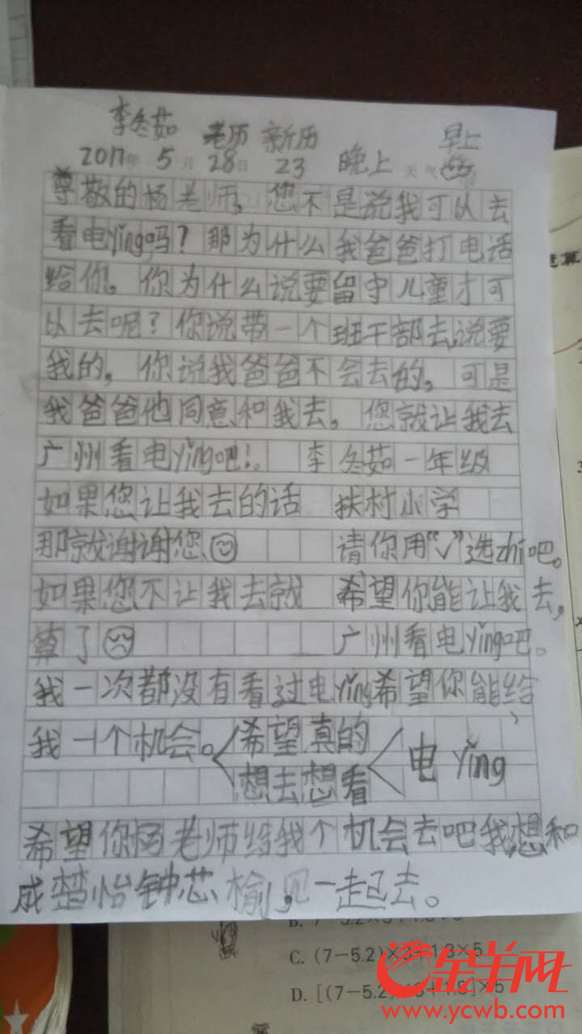 李冬茹 老历 新历 早上
2017年 5月 28日 23 晚上 天气
尊敬的杨老师,您不是说我可以去
看电yǐng吗?那为什么我爸爸打电话
给你,你为什么说要留守儿童才可
以去呢?你说带一个班干部去,说要
我的,你说我爸爸不会去的,可是
我爸爸他同意和我去,您就让我去
广州看电yǐng吧!。 李冬茹一年级
如果您让我去的话 扶村小学
那就谢谢您 请你用“√”选zhi吧。
如果您不让我去就 希望你能让我去,
算了 广州看电yǐng吧。
我一次都没有看过电yǐng希望你能给
我一个机会。希望真的
想去想看 电yǐng
希望你杨老师给我个机会去吧我想和
成楚怡钟芯榆,见一起去。
C. (7-5.2)×3+1.3×5
D. [(7-5.2)
金羊网
www.ycwb.com